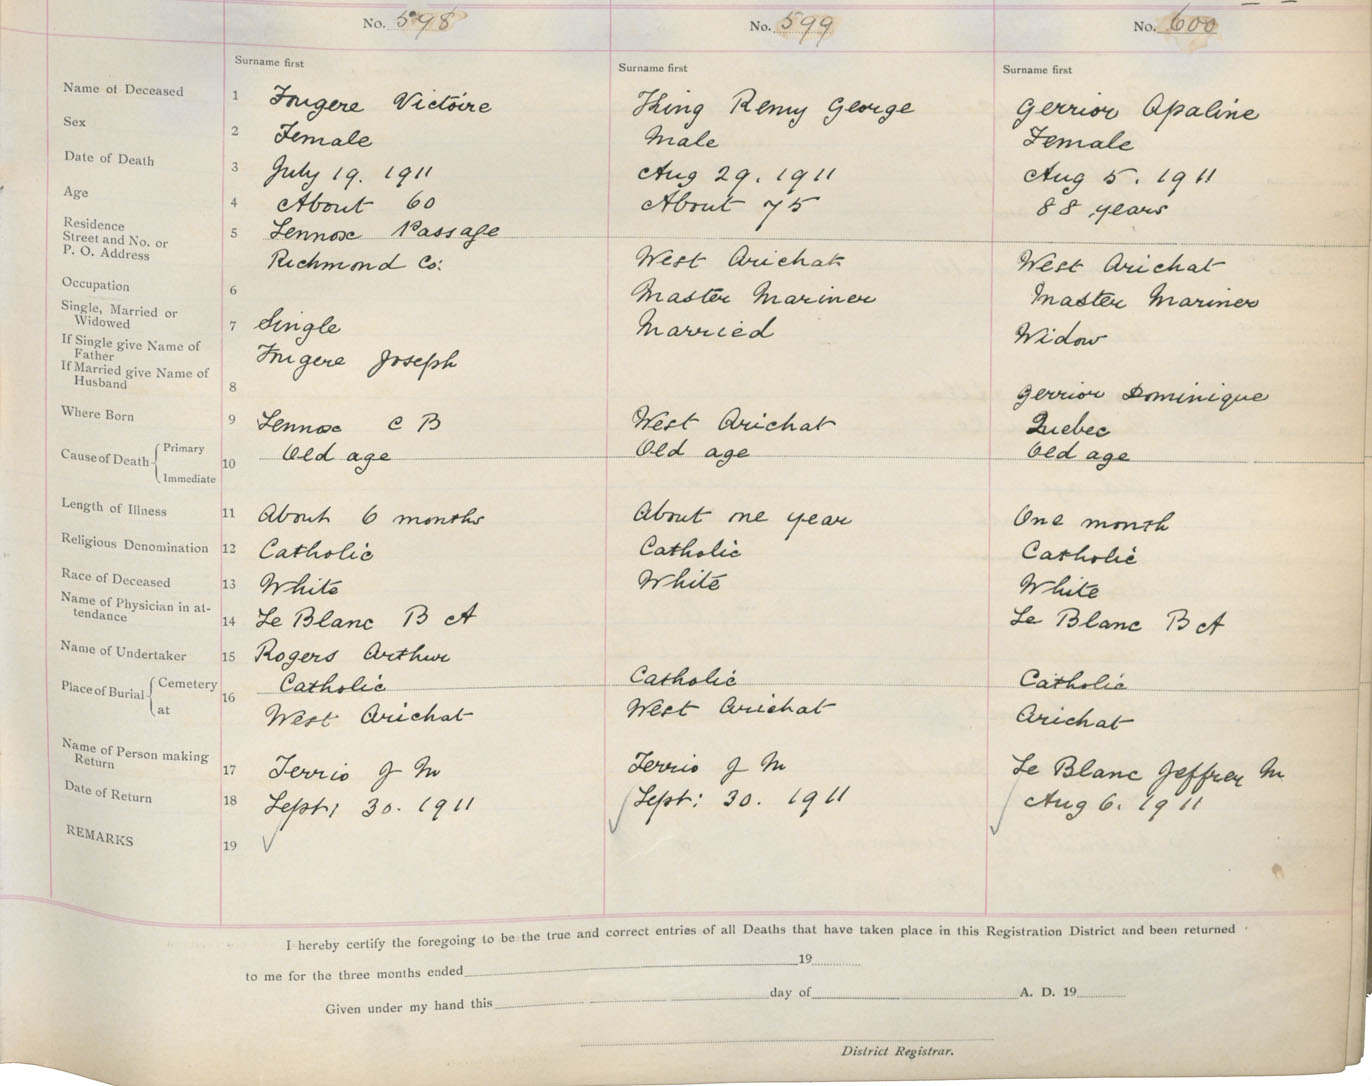 No. 598 No. 599 No. 600
Surname first Surname first Surname first
Name of Deceased 1 Fougere Victoire King Remy George Gerrior Apaline
Sex 2 Female Male Female
Date of Death 3 July 19. 1911 Aug 29. 1911 Aug 5. 1911
Age 4 About 60 About 75 88 years
Residence
Street and No. or 5 Lennox Passage
P. O. Address Richmond Co: West Arichat West Arichat
Occupation 6 Master Mariner Master Mariner
Single, Married or
Widowed 7 Single Married Widow
If Single give Name of
Father Fougere Joseph
If Married give Name of
Husband 8 Gerrior Dominique
Where Born 9 Lennox C B West Arichat Quebec
Cause of Death Primary 10 Old age Old age Old age
Immediate
Length of Illness 11 About 6 months About one year One month
Religious Denomination 12 Catholic Catholic Catholic
Race of Deceased 13 White White White
Name of Physician in at-
tendance 14 Le Blanc B A Le Blanc B A
Name of Undertaker 15 Rogers Arthur
Place of Burial Cemetery 16 Catholic Catholic Catholic
at West Arichat West Arichat Arichat
Name of Person making
Return 17 Terrio J M Terrio J M Le Blanc Jeffrey M.
Date of Return 18 Sept; 30. 1911 Sept: 30. 1911 Aug 6. 1911
REMARKS 19
I hereby certify the foregoing to be the true and correct entries of all Deaths that have taken place in this Registration District and been returned
to me for the three months ended 19
Given under my hand this day of A. D. 19
District Registrar.